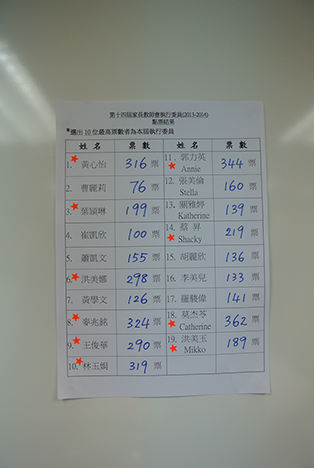 第十四屆家長教師會執行委員(2013-2014)
點票結果
*選出 10 位最高票數者為本屆執行委員
姓 名 票 數 姓 名 票 數
1. 黃心怡 316 票 11. 郭力英 Annie 344 票
2. 曹麗莉 76 票 12. 張美倫 Stella 160 票
3. 葉穎琳 199 票 13. 關雅婷 Katherine 139 票
4. 崔凱欣 100 票 14. 蔡 昇 Shacky 219 票
5. 蕭凱文 155 票 15. 胡麗欣 136 票
6. 洪美娜 298 票 16. 李美兒 133 票
7. 黃學文 126 票 17. 羅駿偉 141 票
8. 麥兆銘 324 票 18. 莫杰苓 Catherine 362 票
9. 王俊華 290 票 19. 洪美玉 Mikko 189 票
10. 林玉娟 319 票